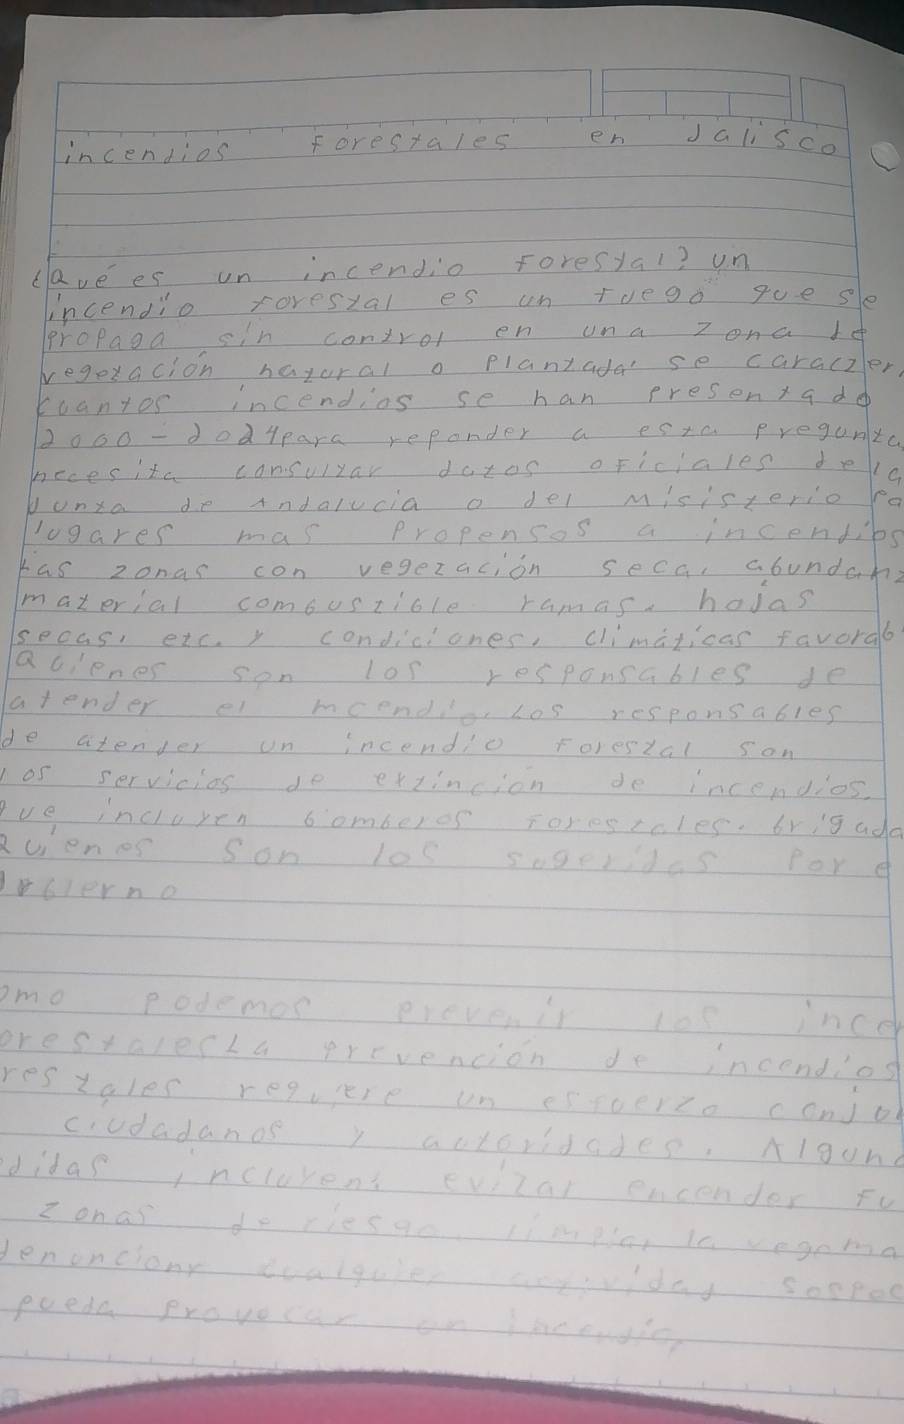 incendios forestales en Jalisco
¿Qué es un incendio forestal? un
incendio forestal es un fuego que se
propaga sin control en una zona de
vegetación natural o plantada. se caracter
cuantos incendios se han presentado
2000-2024 para reponder a esta pregunta
necesita consultar datos oficiales de la
junta de Andalucia o del Misisterio pa
lugares mas propensos a incendios
Las zonas con vegetación seca, abundant
material combustible ramas, hojas
secas, etc. y condiciones, climáticas favorab
Quienes son los responsables de
atender el incendio. Los responsables
de atender un incendio forestal son
los servicios de extincion de incendios.
que incluyen bomberos forestales. brigada
Quienes son los sugeridas por e
omo podemos prevenir los ince
orestales La prevención de incendios
restales requiere un esfuerzo conju
ciudadanos y autoridades. Algun
didas incluyen: evitar encender fu
zonas de riesgo, limpiar la
denoncionr cualquier actividad sospec
pueda provocar un incendio.